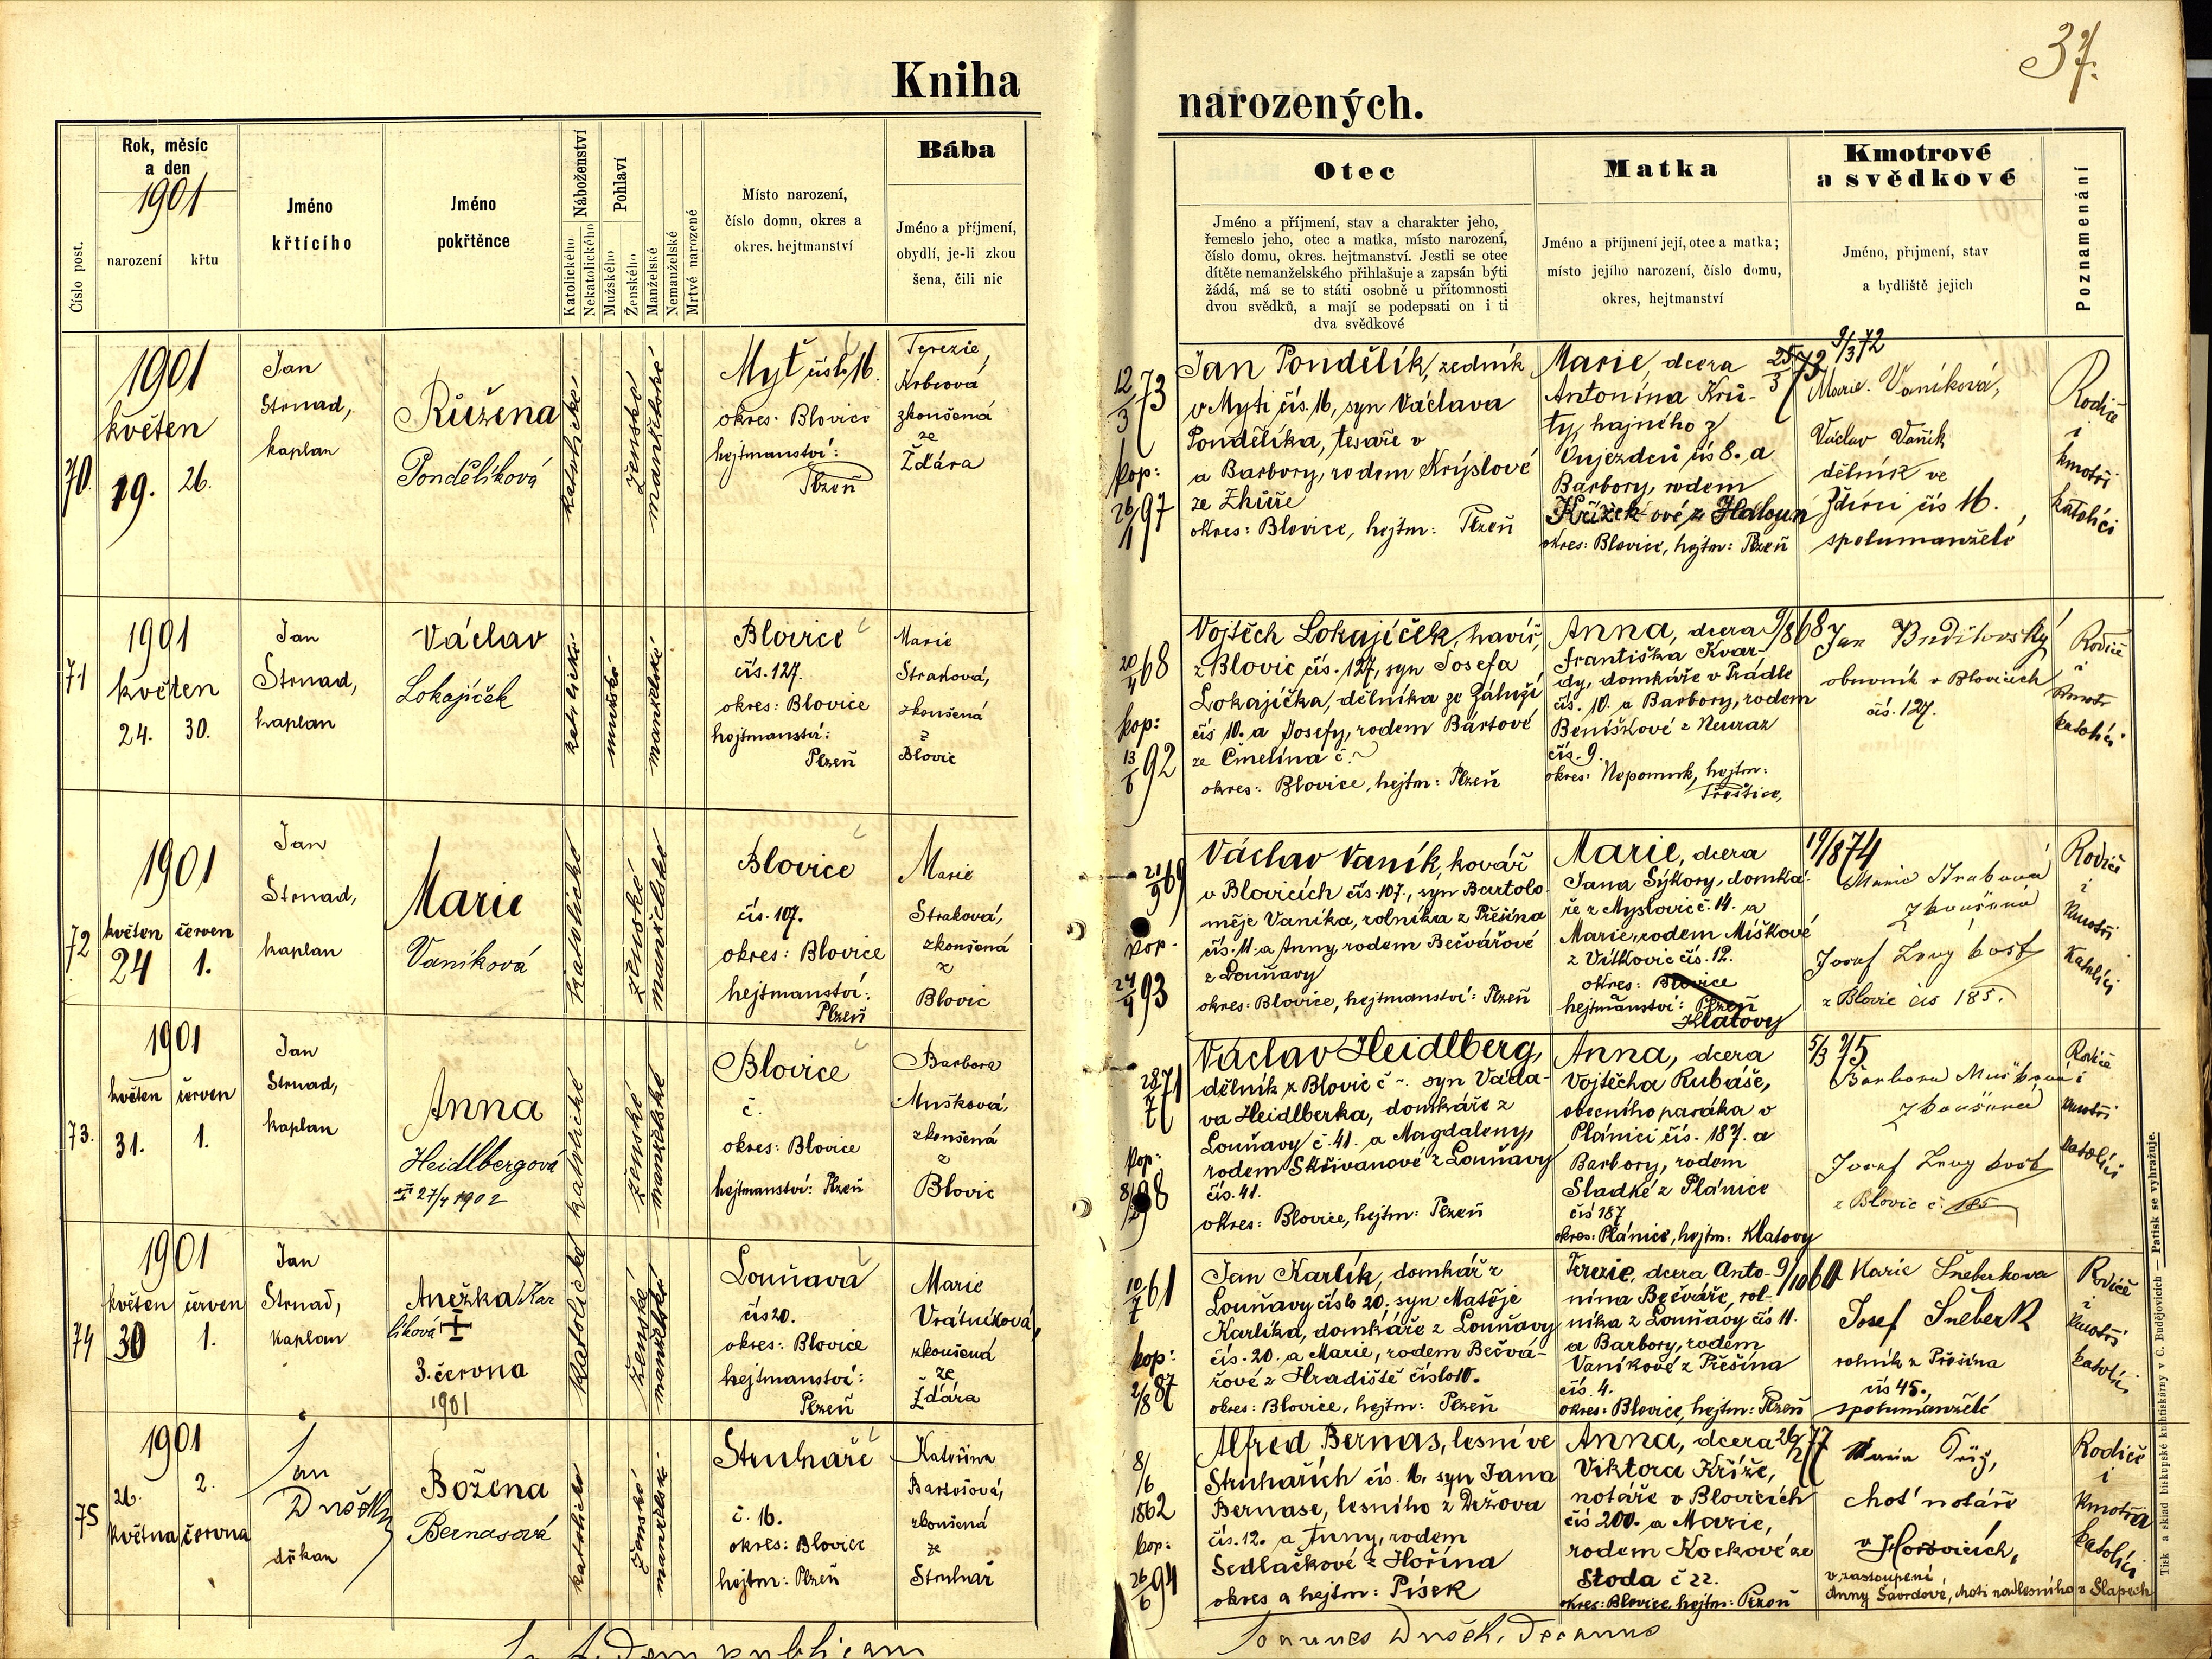 37.
Kniha
narozených.
Číslo post.
Rok, měsíc
a den
1901
narození
křtu
Jméno
křtícího
Jméno
pokřtěnce
Náboženství
Katolického
Nekatolického
Pohlaví
Mužského
Ženského
Manželské
Nemanželské
Mrtvé narozené
Místo narození,
číslo domu, okres a
okres. hejtmanství
Bába
Jméno a příjmení,
obydlí, je-li zkou
šena, čili nic
Otec
Jméno a příjmení, stav a charakter jeho,
řemeslo jeho, otec a matka, místo narození,
číslo domu, okres. hejtmanství. Jestli se otec
dítěte nemanželského přihlašuje a zapsán býti
žádá, má se to státi osobně u přítomnosti
dvou svědků, a mají se podepsati on i ti
dva svědkové
Matka
Jméno a příjmení její, otec a matka;
místo jejího narození, číslo domu,
okres, hejtmanství
Kmotrové
a svědkové
Jméno, příjmení, stav
a bydliště jejich
Poznamenání
70.
1901
květen
19.
26.
Jan
Strnad,
kaplan
Růžena
Pondělíková
katolické
ženské
manželské
Myť čislo 16.
okres: Blovice
hejtmanství:
Plzeň
Terezie
Krbcová
zkoušená
ze
Ždára
12/3 73
kop:
26/1 97
Jan Pondělík, zedník
v Myti čís. 16, syn Václava
Pondělíka, tesaře v
a Barbory, rodem Krýslové
ze Zhůře
okres: Blovice, hejtm: Plzeň
Marie, dcera 25/3 73
Antonína Kru-
ty, hajného z
Oujezdeů čís 8. a
Barbory, rodem
Křížek-ové z Haloun
okres: Blovice, hejtm: Plzeň
9/3 72
Marie Vaníková,
Václav Vaník
dělník ve
Zdírci čís 16.
spolumanželé
Rodiče
i
kmotři
katolíci
71
1901
květen
24.
30.
Jan
Strnad,
kaplan
Václav
Lokajíček
katolické
mužské
manželské
Blovice
čís. 127.
okres: Blovice
hejtmanství:
Plzeň
Marie
Straková,
zkoušená
z
Blovic
20/4 68
kop:
13/6 92
Vojtěch Lokajíček, havíř,
z Blovic čís. 127, syn Josefa
Lokajíčka, dělníka ze Záluží
čís 10. a Josefy, rodem Bártové
ze Čmelína č. ~
okres: Blovice, hejtm: Plzeň
Anna, dcera 9/8 68
Františka Kvar-
dy, domkáře v Prádle
čís. 10. a Barbory, rodem
Beníškové z Neuraz
čís. 9.
okres: Nepomuk, hejtm:
Přeštice,
Jan Buditovský
obuvník v Blovicích
čís. 127.
Rodiče
i
kmotr
katolíci
72
1901
květen
červen
24
1.
Jan
Strnad,
kaplan
Marie
Vaníková
katolické
ženské
manželské
Blovice
čís. 107.
okres: Blovice
hejtmanství:
Plzeň
Marie
Straková,
zkoušená
z
Blovic
21/9 69
kop.
24/4 93
Václav Vaník, kovář
v Blovicích čís. 107., syn Bartolo
měje Vaníka, rolníka z Přešína
čís. 11. a Anny, rodem Bečvářové
z Louňavy
okres: Blovice, hejtmanství: Plzeň
Marie, dcera
Jana Sýkory, domká-
ře z Myslovic č. 14. a
Marie, rodem Miškové
z Vítkovic čís. 12.
okres: Blovice
hejtmanství: Plzeň
Klatovy
19/8 74
Marie Straková
zkoušená
Josef
z Blovic čís 185.
Rodiče
i
kmotři
Katolíci
73.
1901
květen
červen
31.
1.
Jan
Strnad,
kaplan
Anna
Heidlbergová
27/4 1902
katolické
ženské
manželské
Blovice
č.
okres: Blovice
hejtmanství: Plzeň
Barbora
Mušková,
zkoušená
z
Blovic
28/7 71
kop:
8/2 98
Václav Heidlberg,
dělník z Blovic č ~. syn Václa-
va Heidlberka, domkáře z
Louňavy č. 41. a Magdaleny,
rodem Skřivanové z Louňavy
čís. 41.
okres: Blovice, hejtm: Plzeň
Anna, dcera
Vojtěcha Rubáše,
obecního pasáka v
Plánici čís. 187. a
Barbory, rodem
Sladké z Plánice
čís 187
okres: Plánice, hejtm: Klatovy
5/3 75
Barbora Mušková
zkoušená
Josef
z Blovic č. 185
Rodiče
i
kmotři
katolíci
74
1901
květen
červen
30
1.
Jan
Strnad,
kaplan
Anežka Kar
líková
3. června
1901
katolické
ženské
manželské
Louňavá
čís 20.
okres: Blovice
hejtmanství:
Plzeň
Marie
Vrátníková,
zkoušená
ze
Ždára
10/7 61
kop:
2/8 87
Jan Karlík, domkář z
Louňavy číslo 20. syn Matěje
Karlíka, domkáře z Louňavy
čís. 20. a Marie, rodem Bečvá-
řové z Hradiště číslo 10.
okres: Blovice, hejtm: Plzeň
Terezie, dcera Anto- 9/10 60
nína Bečváře, rol-
níka z Louňavy čís 11.
a Barbory, rodem
Vaníkové z Přešína
čís. 4.
okres: Blovice, hejtm: Plzeň
Marie Šneberkova
Josef Šneberk
rolník z Přešína
čís 45.,
spolumanželé
Rodiče
i
kmotři
katolíci
75
1901
26.
2.
května
června
Jan
Dušek
děkan
Božena
Bernasová
katolické
ženské
manželské
Struhaře
č. 16.
okres: Blovice
hejtm: Plzeň
Kateřina
Bartošová,
zkoušená
ze
Struhař
8/6
1862
kop:
26/6 94
Alfred Bernas, lesní ve
Struhařích čís. 16. syn Jana
Bernase, lesního z Držova
čís. 12. a Anny, rodem
Sedlačkové z Hořína
okres a hejtm: Písek
Anna, dcera 26/2 77
Viktora Kříže,
notáře v Blovicích
čís 200. a Marie,
rodem Kockové ze
Stoda č 22.
okres: Blovice, hejtm: Plzeň
Marie Kříž,
choť notáře
v Hořovicích,
v zastoupení
Anny Šavrdové, choti nadlesního v Slapech
Rodiče
i
Kmotři
katolíci
In fidem publicam
Joannes Dušek, Decanus
Tisk a sklad biskupské knihtiskárny v C. Budějovicích — Patisk se vyhražuje.